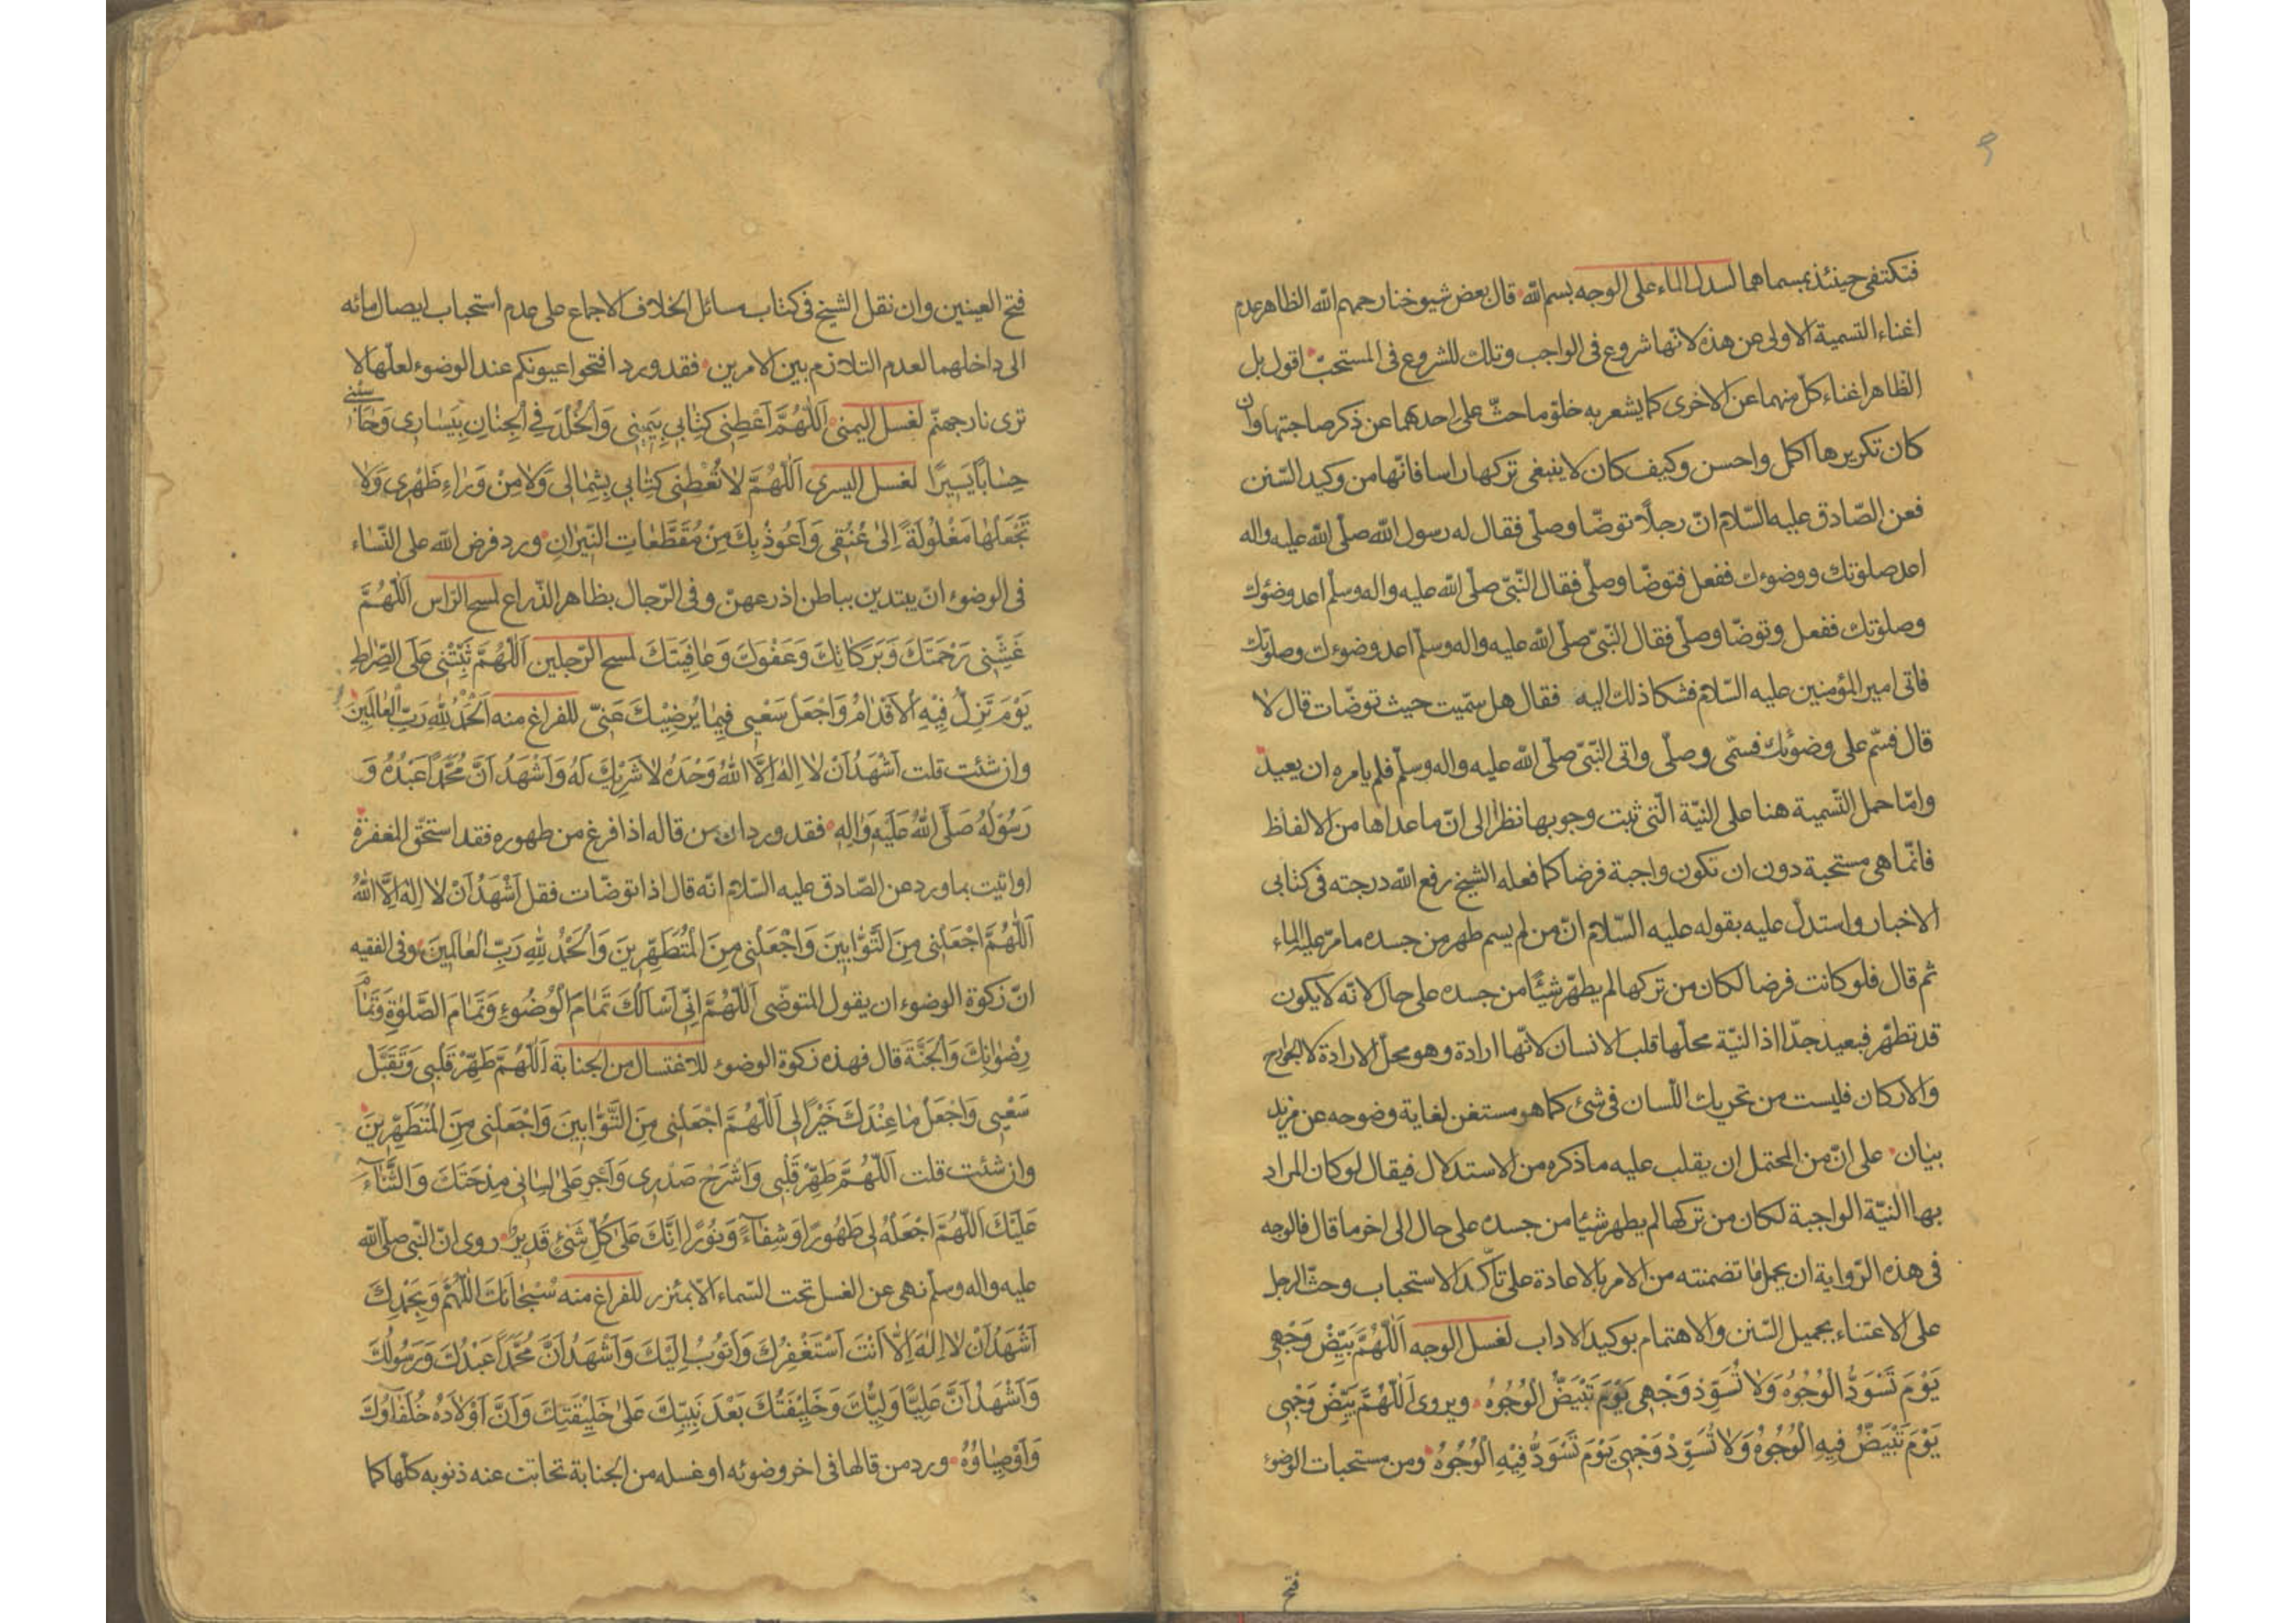 ٩
فتكتفى حينئذ بمسماهما لسدل الماء على الوجه بسم الله قال بعض شيوخنا رحمهم الله الظاهر عدم
اغناء التسمية الاولى عن هذه لانّها شروع فى الواجب وتلك للشروع فى المستحبّ اقول بل
الظاهر اغناء كلّ منهما عن الاخرى كما يشعر به خلوّ ما حثّ على احدهما عن ذكر صاحبتها وان
كان تكريرها اكمل واحسن وكيف كان لا ينبغى تركها راسا فانّها من وكيد السّنن
فعن الصّادق عليه السّلام انّ رجلًا توضّا وصلّى فقال له رسول الله صلّى الله عليه واله
اعد صلوتك ووضوءك ففعل فتوضّا وصلّى فقال النّبىّ صلّى الله عليه واله وسلّم اعد وضوءك
وصلوتك ففعل وتوضّا وصلّى فقال النّبىّ صلّى الله عليه واله وسلّم اعد وضوءك وصلوتك
فاتى امير المؤمنين عليه السّلام فشكا ذلك اليه فقال هل سمّيت حيث توضّات قال لا
قال فسمّ على وضوئك فسمّى وصلّى واتى النّبىّ صلّى الله عليه واله وسلّم فلم يامره ان يعيد
وامّا حمل التّسمية هنا على النيّة الّتى ثبت وجوبها نظرا الى انّ ما عداها من الالفاظ
فانّما هى مستحبة دون ان تكون واجبة فرضا كما فعله الشيخ رفع الله درجته فى كتابى
الاخبار واستدلّ عليه بقوله عليه السّلام انّ من لم يسم طهر من جسده ما مرّ عليه الماء
ثم قال فلو كانت فرضا لكان من تركها لم يطهّر شيئًا من جسده على حال لانّه لا يكون
قد تطهّر فبعيد جدّا اذ النيّة محلّها قلب الانسان لانّها ارادة وهو محلّ الارادة لا الجوارح
والاركان فليست من تحريك اللّسان فى شئ كما هو مستغن لغاية وضوحه عن مزيد
بيان على انّ من المحتمل ان يقلب عليه ما ذكره من الاستدلال فيقال لو كان المراد
بها النيّة الواجبة لكان من تركها لم يطهر شيئا من جسده على حال الى اخر ما قال فالوجه
فى هذه الرّواية ان يحمل ما تضمنته من الامر بالاعادة على تأكّد الاستحباب وحثّ الرجل
على الاعتناء بجميل السّنن والاهتمام بوكيد الاداب لغسل الوجه اَللّهُمَّ بَيِّضْ وَجْهِى
يَوْمَ تَسْوَدُّ الْوُجُوهُ وَلا تُسَوِّدْ وَجْهِى يَوْمَ تَبْيَضُّ الْوُجُوهُ ويروى اَللّهُمَّ بَيِّضْ وَجْهِى
يَوْمَ تَبْيَضُّ فِيهِ الْوُجُوهُ وَلا تُسَوِّدْ وَجْهِى يَوْمَ تَسْوَدُّ فِيْهِ الْوُجُوهُ ومن مستحبات الوضوء
فتح
فتح العينين وان نقل الشيخ فى كتاب مسائل الخلاف الاجماع على عدم استحباب ايصال مائه
الى داخلهما لعدم التلازم بين الامرين فقد ورد افتحوا عيونكم عند الوضوء لعلّها لا
ترى نار جهنّم لغسل اليمنى اَللّهُمَّ اَعْطِنِى كِتابِى بِيَمِينِى وَالْخُلْدَ فِى الْجِنانِ بِيَسَارِى وَحاسِبْنِى
حِسَابًا يَسِيرًا لغسل اليسرى اَللّهُمَّ لا تُعْطِنِى كِتابِى بِشِمالِى وَلا مِنْ وَراءِ ظَهْرِى وَلا
تَجْعَلْها مَغْلُولَةً اِلى عُنُقِى وَاَعُوذُ بِكَ مِنْ مُقَطَّعاتِ النِّيرانِ ورد فرض الله على النّساء
فى الوضوء ان يبتدين بباطن اذرعهنّ وفى الرّجال بظاهر الذّراع لمسح الرّاس اَللّهُمَّ
غَشِّنِى رَحْمَتَكَ وَبَرَكاتِكَ وَعَفْوَكَ وَعافِيَتَكَ لمسح الرّجلين اَللّهُمَّ ثَبِّتْنِى عَلَى الصِّراطِ
يَوْمَ تَزِلُّ فِيْهِ الْاَقْدامُ وَاجْعَلْ سَعْيِى فِيما يُرْضِيْكَ عَنِّى للفراغ منه اَلْحَمْدُ لِلّهِ رَبِّ الْعالَمِينَ
وان شئت قلت اَشْهَدُ اَنْ لا اِلهَ اِلَّا اللهُ وَحْدَهُ لا شَرِيْكَ لَهُ وَاَشْهَدُ اَنَّ مُحَمَّدًا عَبْدُهُ وَ
رَسُوْلُهُ صَلَّى اللهُ عَلَيْهِ وَالِهِ فقد ورد ان من قاله اذا فرغ من طهوره فقد استحقّ المغفرة
او اتيت بما ورد عن الصّادق عليه السّلام انّه قال اذا توضّات فقل اَشْهَدُ اَنْ لا اِلهَ اِلَّا اللهُ
اَللّهُمَّ اجْعَلْنِى مِنَ التَّوّابِينَ وَاجْعَلْنِى مِنَ الْمُتَطَهِّرِينَ وَالْحَمْدُ لِلّهِ رَبِّ الْعالَمِينَ وفى الفقيه
انّ زكوة الوضوء ان يقول المتوضّى اَللّهُمَّ اِنِّى اَسْاَلُكَ تَمامَ الْوُضُوءِ وَتَمامَ الصَّلوةِ وَتَمامَ
رِضْوانِكَ وَالْجَنَّةَ قال فهذه زكوة الوضوء للاغتسال من الجنابة اَللّهُمَّ طَهِّرْ قَلْبِى وَتَقَبَّلْ
سَعْيِى وَاجْعَلْ ما عِنْدَكَ خَيْرًا لِى اَللّهُمَّ اجْعَلْنِى مِنَ التَّوّابِينَ وَاجْعَلْنِى مِنَ الْمُتَطَهِّرِينَ
وان شئت قلت اَللّهُمَّ طَهِّرْ قَلْبِى وَاشْرَحْ صَدْرِى وَاَجْرِ عَلى لِسانِى مِدْحَتَكَ وَالثَّناءَ
عَلَيْكَ اَللّهُمَّ اجْعَلْهُ لِى طَهُورًا وَشِفاءً وَنُورًا اِنَّكَ عَلى كُلِّ شَىْءٍ قَدِيرٌ روى انّ النّبى صلّى الله
عليه واله وسلّم نهى عن الغسل تحت السّماء الّا بمئزر للفراغ منه سُبْحانَكَ اللّهُمَّ وَبِحَمْدِكَ
اَشْهَدُ اَنْ لا اِلهَ اِلّا اَنْتَ اَسْتَغْفِرُكَ وَاَتُوبُ اِلَيْكَ وَاَشْهَدُ اَنَّ مُحَمَّدًا عَبْدُكَ وَرَسُولُكَ
وَاَشْهَدُ اَنَّ عَلِيًّا وَلِيُّكَ وَخَلِيْفَتُكَ بَعْدَ نَبِيِّكَ عَلى خَلِيْقَتِكَ وَاَنَّ اَوْلادَهُ خُلَفاؤُكَ
وَاَوْصِياؤُهُ ورد من قالها فى اخر وضوئه او غسله من الجنابة تحاتت عنه ذنوبه كلّها كما